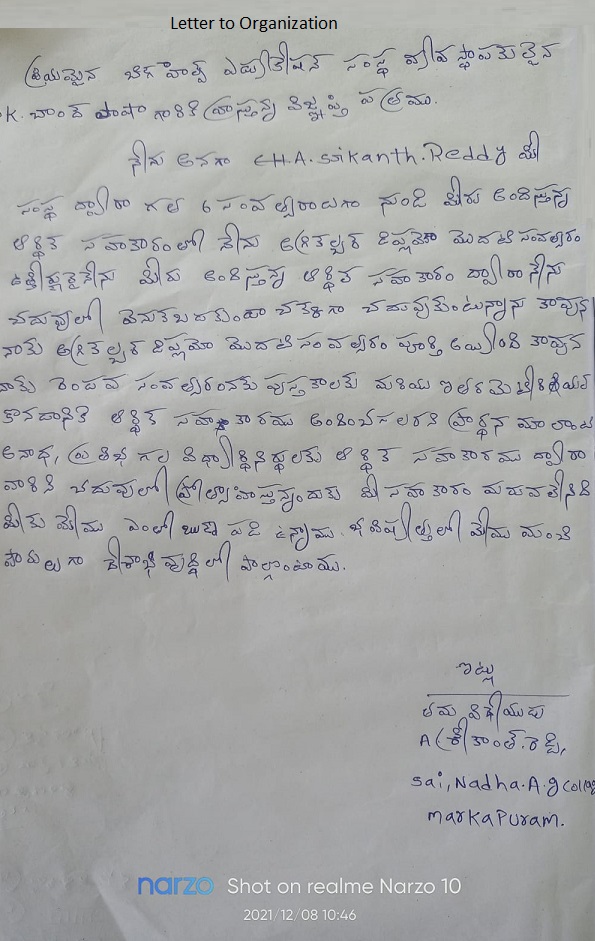 Letter to Organization
ప్రియమైన బిగ్ హెల్ప్ ఎడ్యుకేషన్ సంస్థ వ్యవస్థాపకులైన
K. చాంద్ పాషా గారికి వ్రాస్తున్న విజ్ఞప్తి పత్రము.
నేను అనగా CH.A.srikanth.Reddy మీ
సంస్థ ద్వారా గత 6 సంవత్సరాలుగా నుండి మీరు అందిస్తున్న
ఆర్థిక సహకారంలో నేను అగ్రికల్చర్ డిప్లమో మొదటి సంవత్సరం
మీరు అందిస్తున్న ఆర్థిక సహకారం ద్వారా నేను
చదువులో వెనుకబడకుండా చక్కగా చదువుకుంటున్నాను కావున
నాకు అగ్రికల్చర్ డిప్లమో మొదటి సంవత్సరం పూర్తి అయింది కావున
నాకు రెండవ సంవత్సరంనకు పుస్తకాలకు మరియు ఇతర మెటీరియల్
కొనడానికి ఆర్థిక సహకారము అందించగలరని ప్రార్థన మాలాంటి
అనాథ, ప్రతిభ గల విద్యార్థినిర్థులకు ఆర్థిక సహకారము ద్వారా
వారిని చదువులో ప్రోత్సాహిస్తున్నందుకు మీ సహకారం మరువలేనిది
మీకు మేము ఎంతో ఋణ పడి ఉన్నాము. భవిష్యత్తులో మేము మంచి
పౌరులుగా దేశాభివృద్ధిలో పాల్గొంటాము.
ఇట్లు
తమ విధేయుడు
A శ్రీకాంత్.రెడ్డి,
sai,Nadha.A.g College
markapuram.
narzo Shot on realme Narzo 10
2021/12/08 10:46